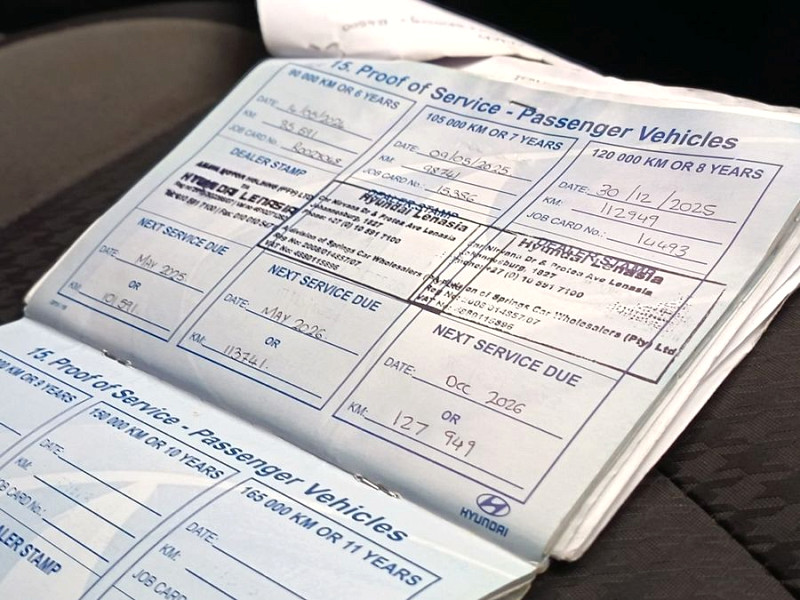 15. Proof of Service - Passenger Vehicles
90 000 KM OR 6 YEARS
DATE:
KM: 
JOB CARD No.:
DEALER STAMP
NEXT SERVICE DUE
DATE: May 2025
OR
KM: 101,591
105 000 KM OR 7 YEARS
DATE: 09/05/2025
KM: 98741
JOB CARD No.: 15356
DEALER STAMP
Hyundai Lenasia
Cnr Nirvana Dr & Protea Ave Lenasia
Johannesburg, 1827
Phone: +27 (0) 10 591 7100
A division of Springs Car Wholesalers
NEXT SERVICE DUE
DATE: May 2026
OR
KM: 113741
120 000 KM OR 8 YEARS
DATE: 30/12/2025
KM: 112949
JOB CARD No.: 14493
DEALER STAMP
Hyundai Lenasia
Cnr Nirvana Dr & Protea Ave Lenasia
Johannesburg, 1827
Phone: +27 (0) 10 591 7100
A division of Springs Car Wholesalers (Pty) Ltd
NEXT SERVICE DUE
DATE: Dec 2026
OR
KM: 127 949
HYUNDAI
15. Proof of Service - Passenger Vehicles
KM OR 9 YEARS
KM:
JOB CARD No.:
DEALER STAMP
150 000 KM OR 10 YEARS
DATE:
KM:
JOB CARD No.:
165 000 KM OR 11 YEARS
DATE:
KM:
JOB CARD No.: